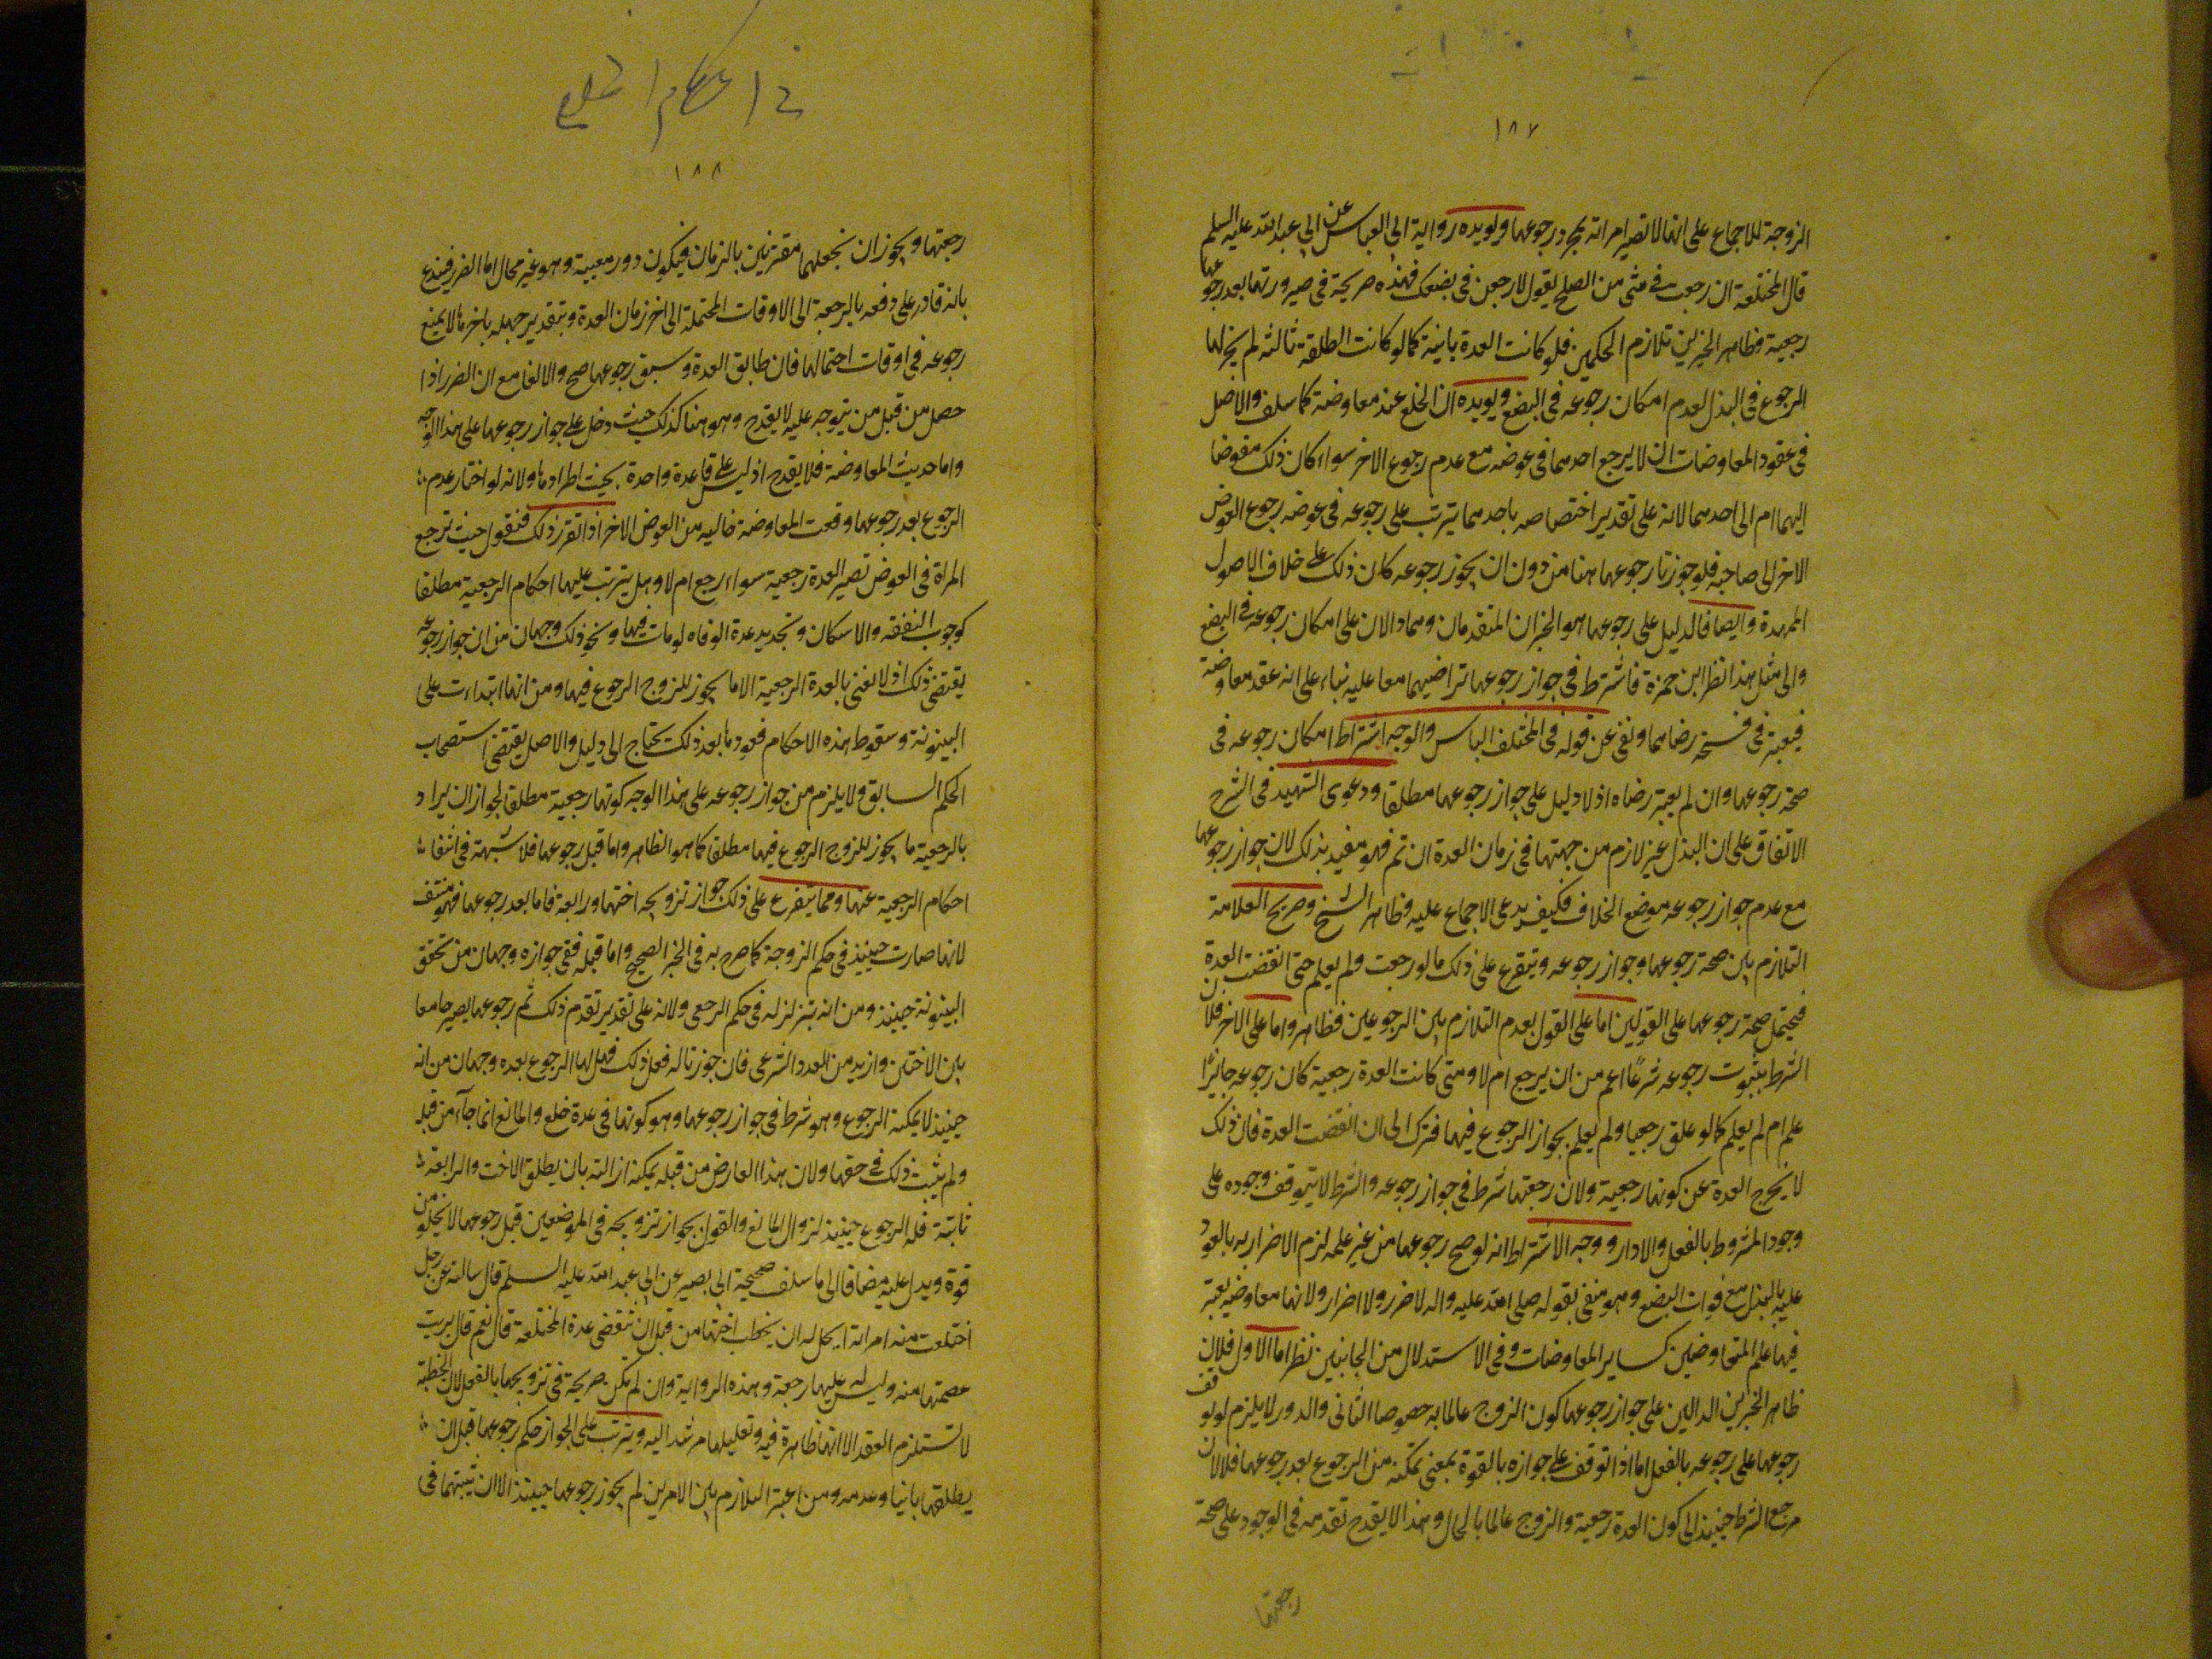 ١٨٧
الزوجة للاجماع على انها لا تصير امراته بمجرد رجوعها ويؤيده رواية ابى العباس عن ابى عبد الله عليه السلم
قال المختلعة ان رجعت فى شى من الصلح يقول لارجعن فى بضعك فهذه صريحة فى صيرورتها بعد رجوعها
رجعية وظاهر الخبرين تلازم الحكمين فلو كانت العدة باينة كما لو كانت الطلقة ثالثة لم يجز لها
الرجوع فى البذل لعدم امكان رجوعه فى البضع ويويده ان الخلع عند معاوضة كما سلف والاصل
فى عقود المعاوضات ان لا يرجع احدهما فى عوضه مع عدم رجوع الاخر سواء كان ذلك مفوضا
اليهما ام الى احدهما لانه على تقدير اختصاصه باحدهما يترتب على رجوعه فى عوضه رجوع العوض
الاخر الى صاحبه فلو جوزنا رجوعها هنا من دون ان يجوز رجوعه كان ذلك على خلاف الاصول
الممهدة وايضا فالدليل على رجوعها هو الخبران المتقدمان وهما دالان على امكان رجوعه فى البضع
والى مثل هذا نظر ابن حمزة فاشترط فى جواز رجوعها تراضيهما معا عليه بناء على انه عقد معاوضة
فيعتبر فى فسخه رضاهما ونفى عن قوله فى المختلف الباس والوجه اشتراط امكان رجوعه فى
صحة رجوعها وان لم يعتبر رضاه اذ لا دليل على جواز رجوعها مطلقا ودعوى الشهيد فى الشرح
الاتفاق على ان البذل غير لازم من جهتها فى زمان العدة ان تم فهو مقيد بذلك لان جواز رجوعها
مع عدم جواز رجوعه موضع الخلاف فكيف يدعى الاجماع عليه وظاهر الشيخ وصريح العلامة
التلازم بين صحة رجوعها وجواز رجوعه ويتفرع على ذلك ما لو رجعت ولم يعلم حتى انقضت العدة
فيحتمل صحة رجوعها على القولين اما على القول بعدم التلازم بين الرجوعين فظاهر واما على الاخر فلان
الشرط ثبوت رجوعه شرعًا اعم من ان يرجع ام لا ومتى كانت العدة رجعية كان رجوعه جايزًا
علم ام لم يعلم كما لو طلق رجعيا ولم يعلم بجواز الرجوع فيها فترك الى ان انقضت العدة فان ذلك
لا يخرج العدة عن كونها رجعية ولان رجعتها شرط فى جواز رجوعه والشرط لا يتوقف وجوده على
وجود المشروط بالفعل والا دار ووجه الاشتراط انه لو صح رجوعها من غير علمه لزم الاضرار به بالعود
عليه بالبذل مع فوات البضع وهو منفى بقوله صلى الله عليه واله لا ضرر ولا اضرار ولانها معاوضة يعتبر
فيها علم المتعاوضين كساير المعاوضات وفى الاستدلال من الجانبين نظر اما الاول فلان
ظاهر الخبرين الدالين على جواز رجوعها كون الزوج عالما به خصوصا الثانى والدور لا يلزم لو توقف
رجوعها على رجوعه بالفعل اما اذا توقف على جوازه بالقوة بمعنى تمكنه من الرجوع بعد رجوعها فلا لان
مرجع الشرط حينئذ الى كون العدة رجعية والزوج عالما بالحال وهذا لا يقدح تقدمه فى الوجود على صحة
رجعتها
فى احكام الخلع
١٨٨
رجعتها ويجوز ان نجعلهما مقترنين بالزمان فيكون دور معية وهو غير محال اما الضرر فيندفع
بانه قادر على دفعه بالرجعة الى الاوقات المحتملة الى اخر زمان العدة وبتقدير جهله باخرها لا يمنع
رجوعه فى اوقات احتمالها فان طابق العدة وسبق رجوعها صح والا لغا مع ان الضرر اذا
حصل من قبل من يتوجه عليه لا يقدح وهو هنا كذلك حيث دخل على جواز رجوعها على هذا الوجه
واما حديث المعاوضة فلا يقدح اذ ليس على قاعدة واحدة بحيث اطرادها ولانه لو اختار عدم
الرجوع بعد رجوعها وقعت المعاوضة خاليه من العوض الاخر اذا تقرر ذلك فنقول حيث ترجع
المراة فى العوض تصير العدة رجعية سواء رجع ام لا وهل يترتب عليها احكام الرجعية مطلقا
كوجوب النفقه والاسكان وتجديد عدة الوفاه لو مات فيها ونحو ذلك وجهان من ان جواز رجوعه
يقتضى ذلك اذ لا نعنى بالعدة الرجعية الا ما يجوز للزوج الرجوع فيها ومن انها ابتداءت على
البينونة وسقوط هذه الاحكام فعودها بعد ذلك يحتاج الى دليل والاصل يقتضى استصحاب
الحكم السابق ولا يلزم من جواز رجوعه على هذا الوجه كونها رجعية مطلقا لجواز ان يراد
بالرجعية ما يجوز للزوج الرجوع فيها مطلقا كما هو الظاهر واما قبل رجوعها فلا شبهة فى انتفاء
احكام الرجعية عنها ومما يتفرع على ذلك جواز تزويجه اختها ورابعة فاما بعد رجوعها فهو منتف
لانها صارت حينئذ فى حكم الزوجة كما صرح به فى الخبر الصحيح واما قبله ففى جوازه وجهان من تحقق
البينونة حينئذ ومن انه بتزلزله فى حكم الرجعى ولانه على تقدير تقدم ذلك ثم رجوعها يصير جامعا
بين الاختين وازيد من العدد الشرعى فان جوزنا له فعل ذلك فهل لها الرجوع بعده وجهان من انه
حينئذ لا يمكنه الرجوع وهو شرط فى جواز رجوعها وهو كونها فى عدة خلع والمانع انما جآء من قبله
ولم يثبت ذلك فى حقها ولان هذا العارض من قبله يمكنه ازالته بان يطلق الاخت والرابعة
ثابتة فله الرجوع حينئذ لزوال المانع والقول بجواز تزويجه فى الموضعين قبل رجوعها لا يخلو من
قوة ويدل عليه مضافا الى ما سلف صحيحة ابى بصير عن ابى عبد الله عليه السلم قال سالته عن رجل
اختلعت منه امراته ايحل له ان يخطب اختها من قبل ان تنقضى عدة المختلعة قال نعم قال بريت
عصمتها منه وليس له عليها رجعة وهذه الرواية وان لم تكن صريحة فى تزويجها بالفعل لان الخطبة
لا تستلزم العقد الا انها ظاهرة فيه وتعليلها مرشد اليه ويترتب على الجواز حكم رجوعها قبل ان
يطلقها باينا وعدمه ومن اعتبر التلازم بين الامرين لم يجوز رجوعها حينئذ الا ان تثبتهما فى